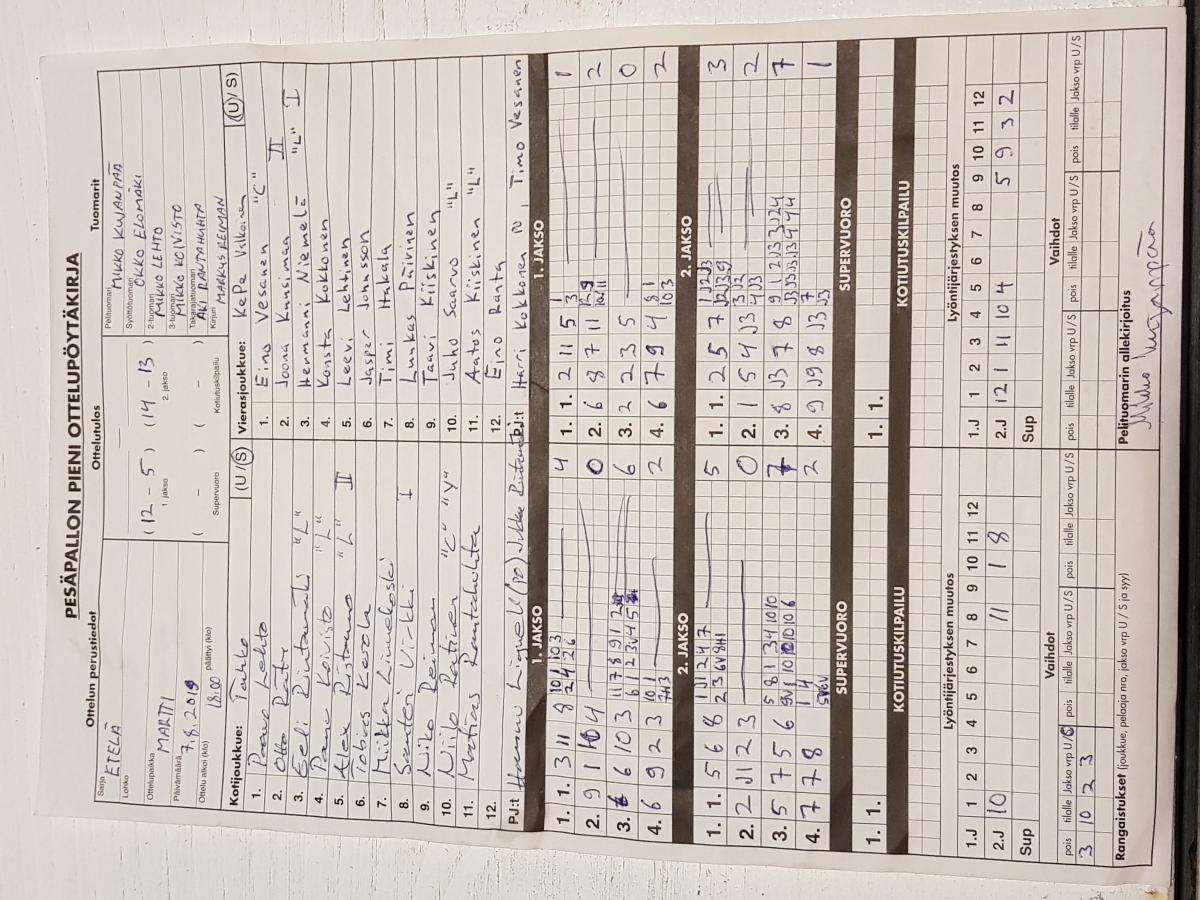 PESÄPALLON PIENI OTTELUPÖYTÄKIRJA
Ottelun perustiedot
Ottelutulos
Tuomarit
Sarja
ETELÄ
Lohko
Ottelupaikka
MARTTI
Päivämäärä
7.8.2019
Ottelu alkoi (klo)
18:00
päättyi (klo)
(12 - 5)
1. jakso
(14 - 13)
2. jakso
( - )
Supervuoro
( - )
Kotiutuskilpailu
Pelituomari
MIKKO KUJANPÄÄ
Syöttötuomari
OKKO ELOMÄKI
2-tuomari
MIKKO LEHTO
3-tuomari
MIKKO KOIVISTO
Takarajatuomari
AKI RANTAHUHTA
Kirjuri
MARKUS REIMAN
Kotijoukkue: Tahko (U / S)
1. Paavo Lehto
2. Otto Räty
3. Eeli Riutamäki "L"
4. Panu Koivisto "L"
5. Alex Ristamo "L" II
6. Tobias Kepola
7. Miikka Linnakoski
8. Santeri Virkki I
9. Niko Reiman
10. Niilo Ratinen "C" "Y"
11. Matias Rantahuhta
12.
PJ:t Hannu Lignell (PO) Jukka
Vierasjoukkue: KePa Vilkainen (U / S)
1. Eino Vesanen "C"
2. Joona Kansimaa II
3. Hermanni Niemelä "L" I
4. Konsta Kokkonen
5. Leevi Lehtinen
6. Jasper Johnsson
7. Timi Hakala
8. Luukas Päivinen
9. Taavi Kiiskinen
10. Juho Saarvo "L"
11. Aatos Kiiskinen "L"
12. Eino Ranta
PJ:t Harri Kokkonen , Timo Vesanen
1. JAKSO
1. 1. 3 11 8 4
2. 9 1 4 0
3. 6 10 3 6
4. 6 9 2 3 2
2. JAKSO
1. 1. 5 6 8 5
2. 2 J1 2 3 0
3. 5 7 5 6 7
4. 7 7 8 2
SUPERVUORO
1. 1.
KOTIUTUSKILPAILU
1. JAKSO
1. 1. 2 11 5 1
2. 6 8 7 11 2
3. 2 2 3 5 0
4. 6 7 9 4 2
2. JAKSO
1. 1. 2 5 7 3
2. 1 5 4 J3 2
3. 8 J3 7 8 7
4. 9 J9 8 J3 1
SUPERVUORO
1. 1.
KOTIUTUSKILPAILU
Lyöntijärjestyksen muutos
1.J 1 2 3 4 5 6 7 8 9 10 11 12
2.J 10 11 1 8
Sup
Lyöntijärjestyksen muutos
1.J 1 2 3 4 5 6 7 8 9 10 11 12
2.J 12 1 11 10 4 5 9 3 2
Sup
Vaihdot
pois tilalle Jakso vrp U/S pois tilalle Jakso vrp U/S pois tilalle Jakso vrp U/S
3 10 2 3
Vaihdot
pois tilalle Jakso vrp U/S pois tilalle Jakso vrp U/S pois tilalle Jakso vrp U/S
Rangaistukset (joukkue, pelaaja nro, jakso vrp U / S ja syy)
Pelituomarin allekirjoitus